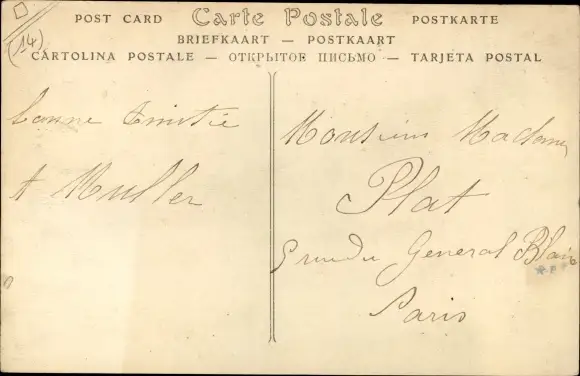 (14)
POST CARD Carte Postale POSTKARTE
BRIEFKAART — POSTKAART
CARTOLINA POSTALE — ОТКРЫТОЕ ПИСЬМО — TARJETA POSTAL
bonne Amitié
A Muller
Monsieur Madame
Plat
rue du General Blain
Paris